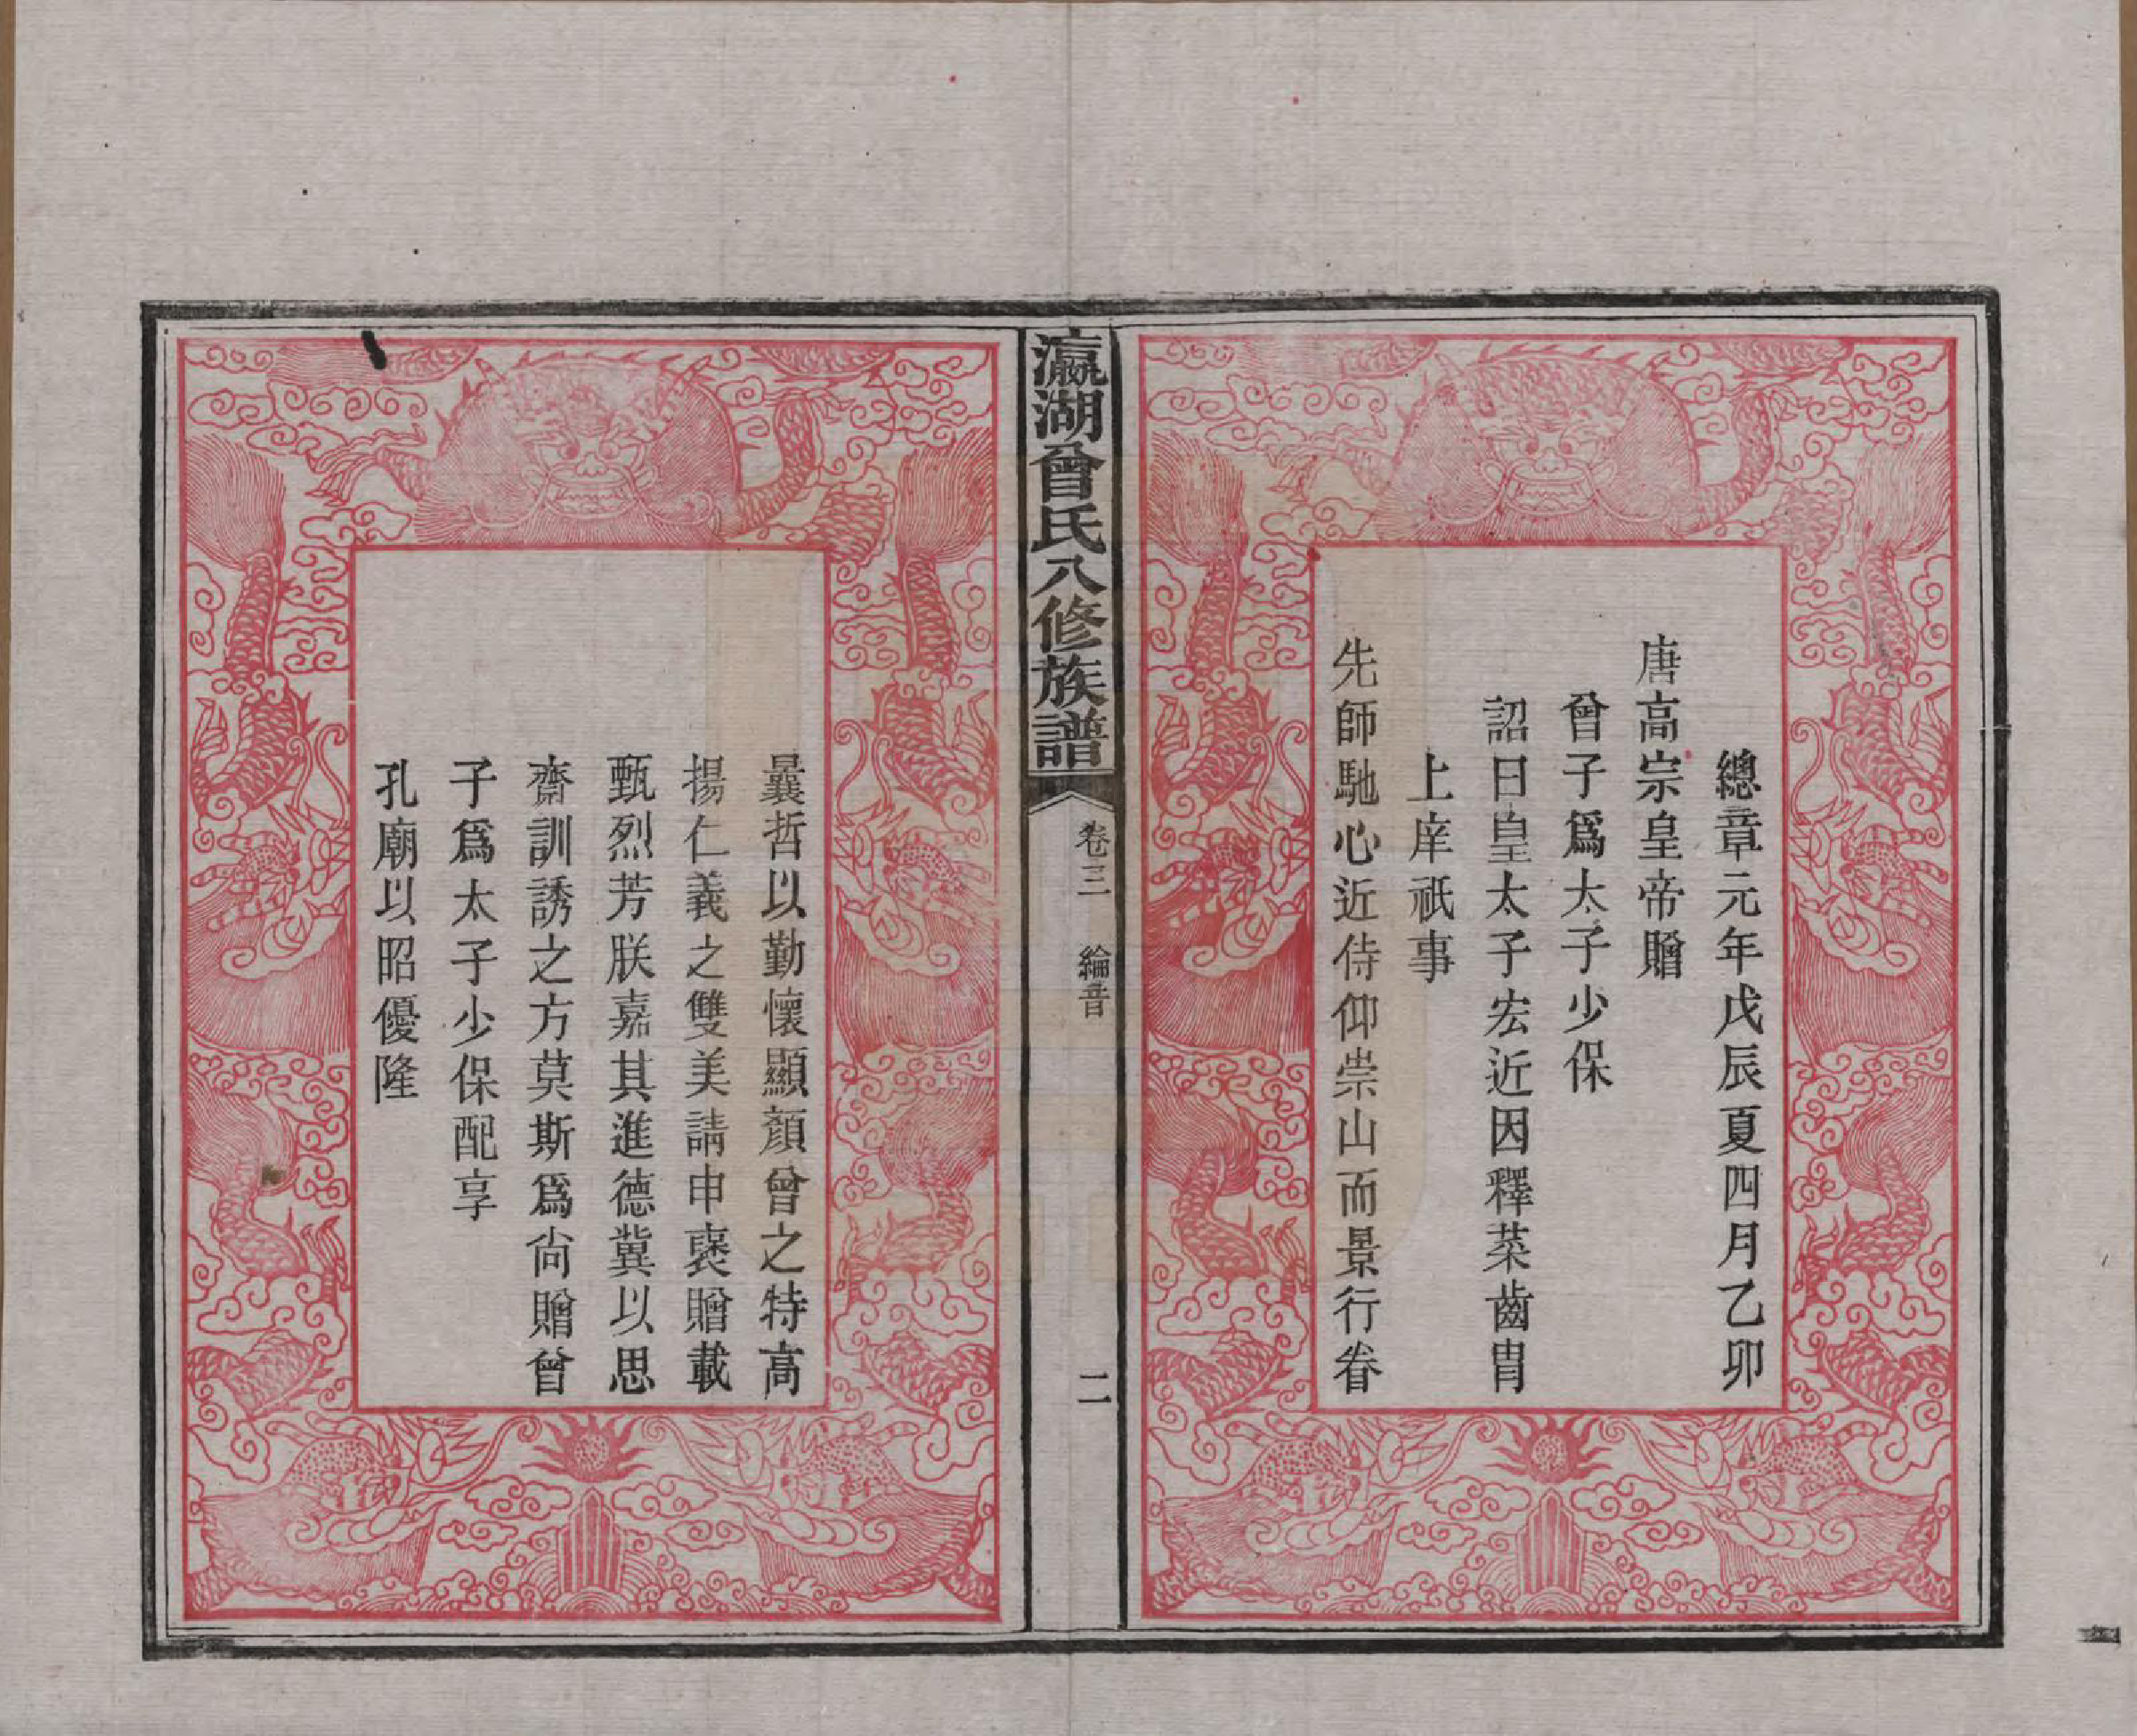 總章元年戊辰夏四月乙卯
唐高宗皇帝贈
曾子爲太子少保
詔曰皇太子宏近因釋菜齒胄
上庠祇事
先師馳心近侍仰崇山而景行眷
瀛湖曾氏八修族譜 卷三 綸音 二
曩哲以勤懷顯顏曾之特高
揚仁義之雙美請申褒贈載
甄烈芳朕嘉其進德冀以思
齋訓誘之方莫斯爲尚贈曾
子爲太子少保配享
孔廟以昭優隆